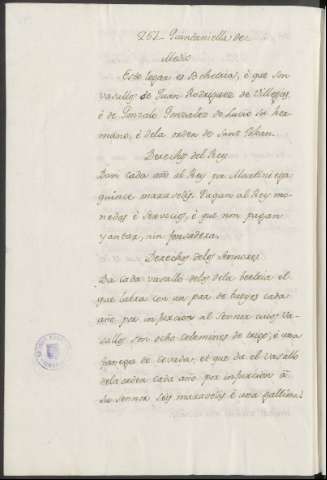 262– Quintaniella de
Medio
Este logar es Behetria, é que son
vasallos de Juan Rodriguez de Villegas,
é de Gonzalo Gonzalez de Lucio so her-
mano, é dela orden de Sant Johan.
Derechos del Rey
Dan cada año al Rey por Martiniega
quince maravedis. Pagan al Rey mo-
nedas é servicios, é que non pagan
yantar, nin fonsadera.
Derechos delos Sennores
Da cada vasallo delos dela beetria el
que labra con un par de bueyes cada
año por infurcion al Sennor cuios va-
sallos son ocho celemines de trigo, é una
fanega de cevada, et que da el vasallo
dela orden cada año por infurcion á
su sennor seis maravedis é una gallina.